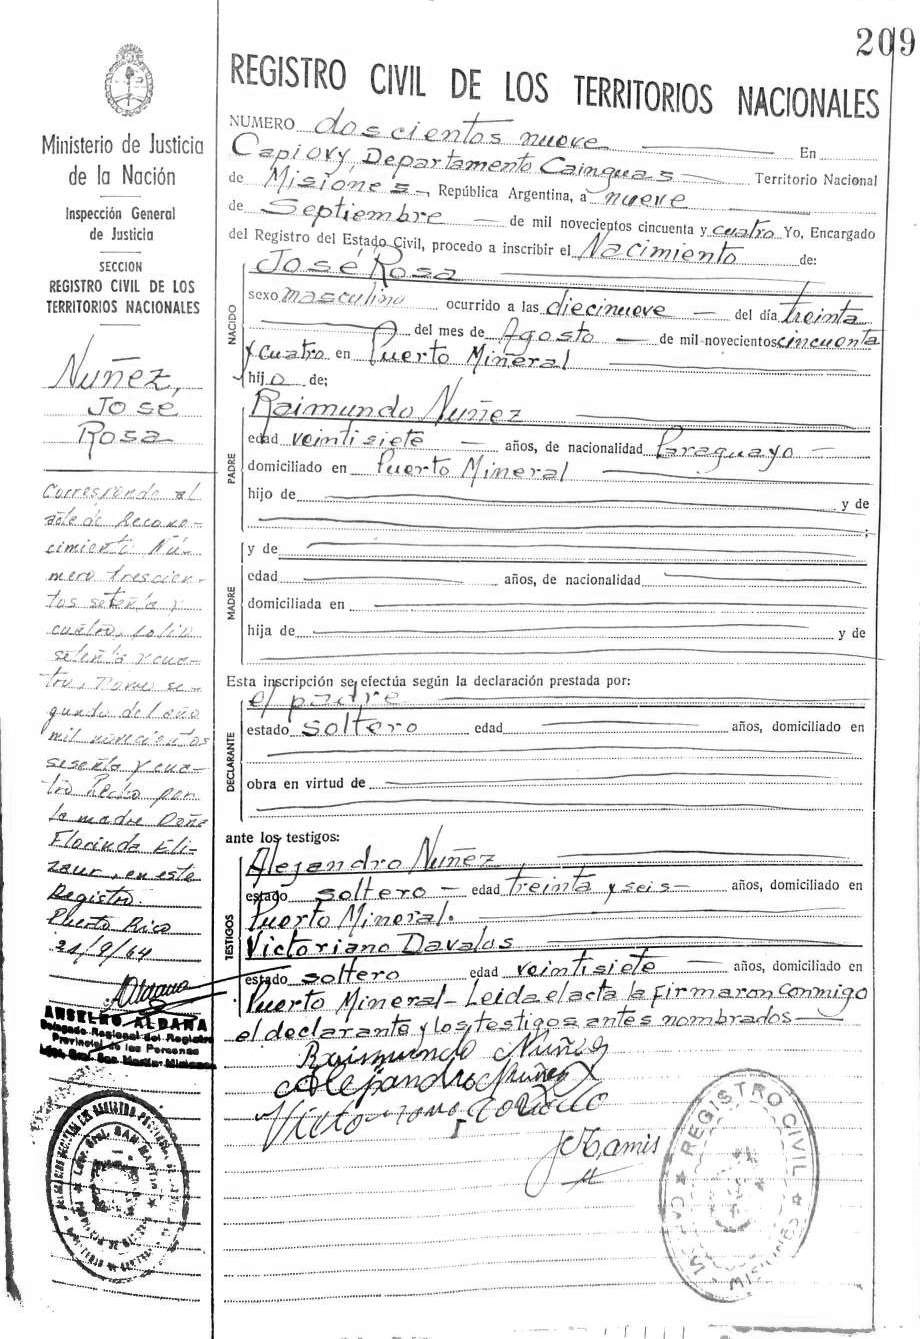 209
REGISTRO CIVIL DE LOS TERRITORIOS NACIONALES
Ministerio de Justicia
de la Nación
Inspección General
de Justicia
SECCION
REGISTRO CIVIL DE LOS
TERRITORIOS NACIONALES
Nuñez,
José
Rosa
Corresponde al
acta de Recono-
cimiento Nú-
mero trescien-
tos setenta y
cuatro, folio
setenta y cua-
tro, Tomo se-
gundo del año
mil novecientos
sesenta y cua-
tro hecho por
la madre Doña
Florinda Eli-
zaur, en este
Registro.
Puerto Rico
21/9/64
ANSELMO ALDANA
Delegado Regional del Registro
Provincial de las Personas
NUMERO doscientos nueve En
Capiovy, Departamento Cainguas Territorio Nacional
de Misiones, República Argentina, a nueve
de Septiembre de mil novecientos cincuenta y cuatro Yo, Encargado
del Registro del Estado Civil, procedo a inscribir el Nacimiento de:
NACIDO
José Rosa
sexo masculino ocurrido a las diecinueve del día treinta
del mes de Agosto de mil novecientos cincuenta
y cuatro en Puerto Mineral
hijo de;
PADRE
Raimundo Nuñez
edad veintisiete años, de nacionalidad Paraguayo
domiciliado en Puerto Mineral
hijo de y de
MADRE
y de
edad años, de nacionalidad
domiciliada en
hija de y de
Esta inscripción se efectúa según la declaración prestada por:
DECLARANTE
el padre
estado soltero edad años, domiciliado en
obra en virtud de
ante los testigos:
TESTIGOS
Alejandro Nuñez
estado soltero edad treinta y seis años, domiciliado en
Puerto Mineral.
Victoriano Davalos
estado soltero edad veintisiete años, domiciliado en
Puerto Mineral - Leida el acta la firmaron conmigo
el declarante y los testigos antes nombrados
Raimundo Nuñez
Alejandro Nuñez
REGISTRO CIVIL
MISIONES